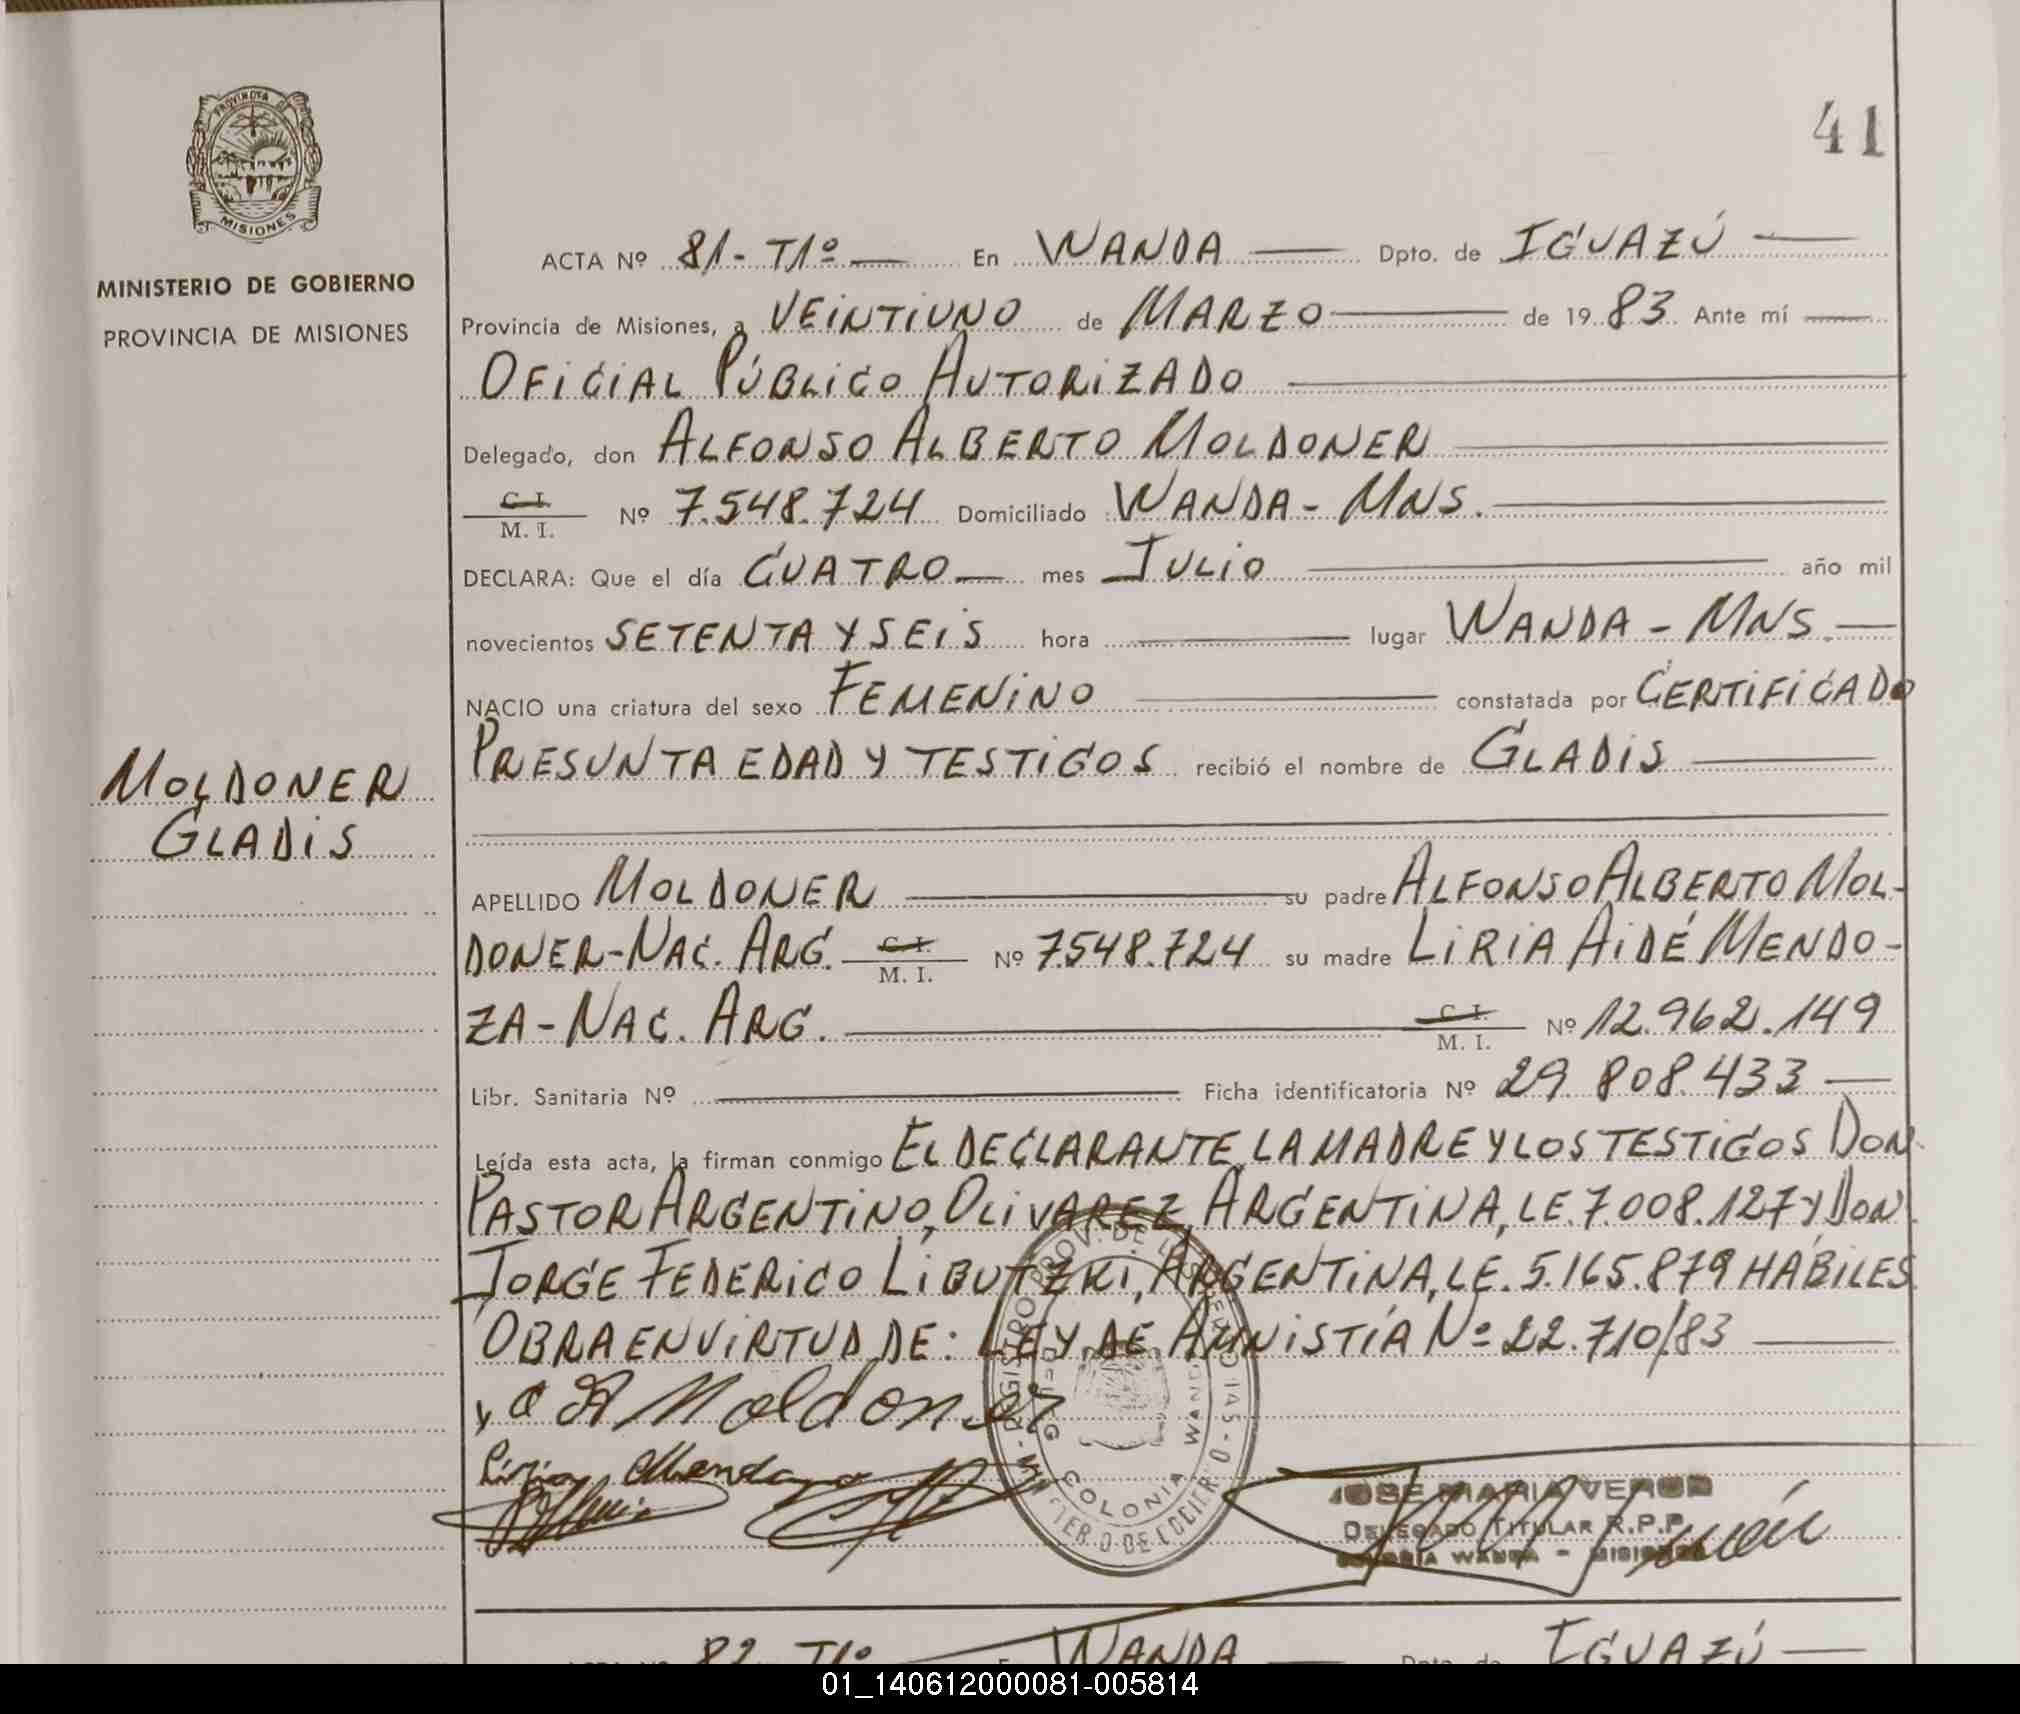 PROVINCIA DE
MISIONES
MINISTERIO DE GOBIERNO
PROVINCIA DE MISIONES
MOLDONER
GLADIS
41
ACTA Nº 81-T1º En WANDA Dpto. de IGUAZÚ
Provincia de Misiones, a VEINTIUNO de MARZO de 1983 Ante mí
OFICIAL PÚBLICO AUTORIZADO
Delegado, don ALFONSO ALBERTO MOLDONER
C. I.
M. I. Nº 7.548.724 Domiciliado WANDA-MNS.
DECLARA: Que el día CUATRO mes JULIO año mil
novecientos SETENTA Y SEIS hora lugar WANDA-MNS.
NACIO una criatura del sexo FEMENINO constatada por CERTIFICADO
PRESUNTA EDAD Y TESTIGOS recibió el nombre de GLADIS
APELLIDO MOLDONER su padre ALFONSO ALBERTO MOL-
DONER-NAC. ARG. C. I. M. I. Nº 7.548.724 su madre LIRIA AIDÉ MENDO-
ZA-NAC. ARG. C. I. M. I. Nº 12.962.149
Libr. Sanitaria Nº Ficha identificatoria Nº 29.808.433
Leída esta acta, la firman conmigo EL DECLARANTE, LA MADRE Y LOS TESTIGOS DON
PASTOR ARGENTINO, OLIVAREZ, ARGENTINA, LE. 7.008.127 Y DON
JORGE FEDERICO LIBUTZKI, ARGENTINA, LE. 5.165.879 HÁBILES
OBRA EN VIRTUD DE: LEY DE AMNISTÍA Nº 22.710/83
Moldoner
Liria Mendoza
REGISTRO PROV. DE LAS
COLONIA WANDA
JOSE MARIA
DELEGADO TITULAR R.P.P.
COLONIA WANDA - MISIONES
82 T1º WANDA Dpto. de IGUAZÚ
01_140612000081-005814